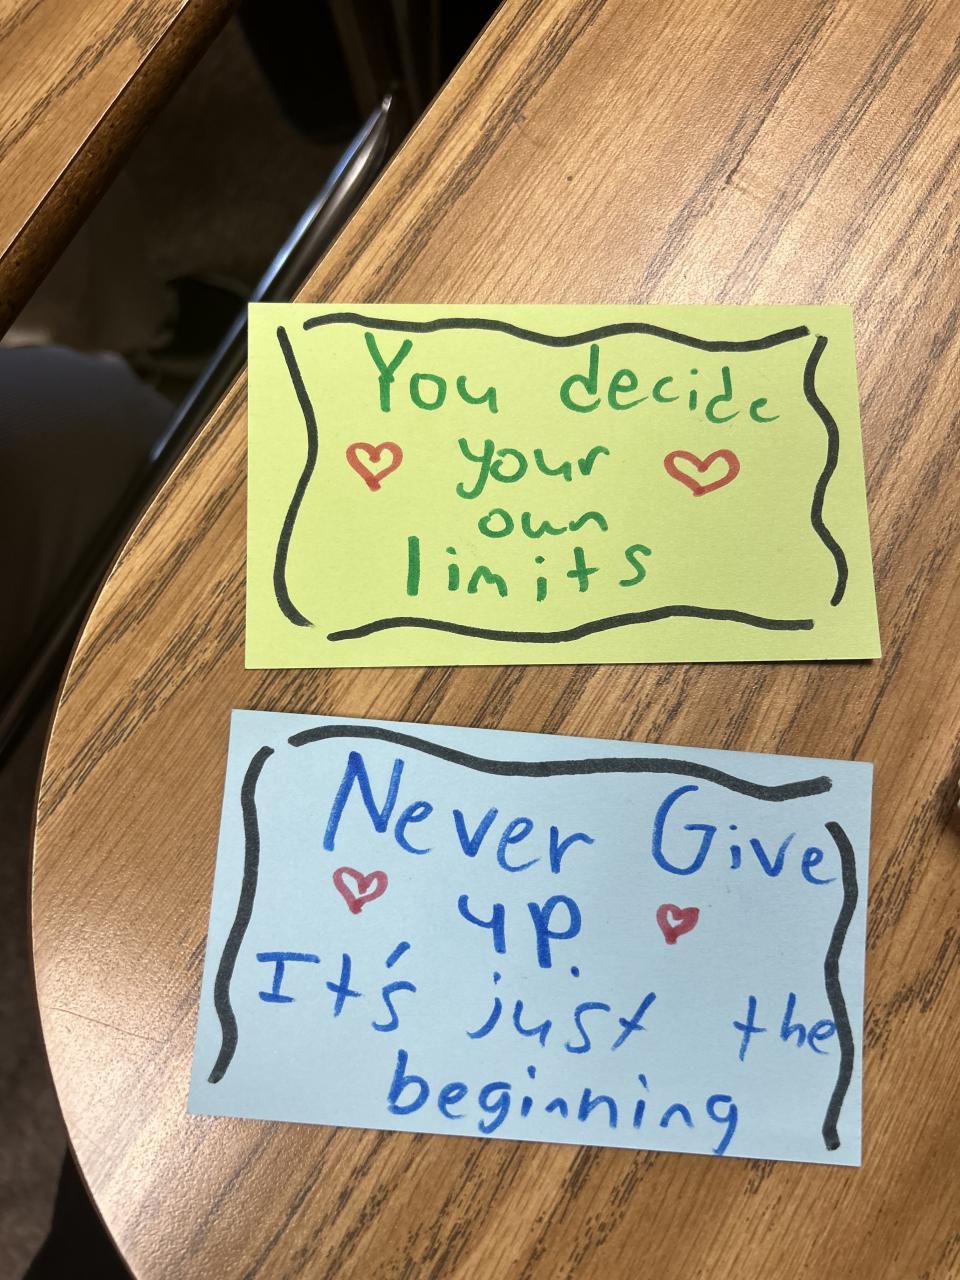 You decide
your
own
limits
Never Give
up.
It's just the
beginning